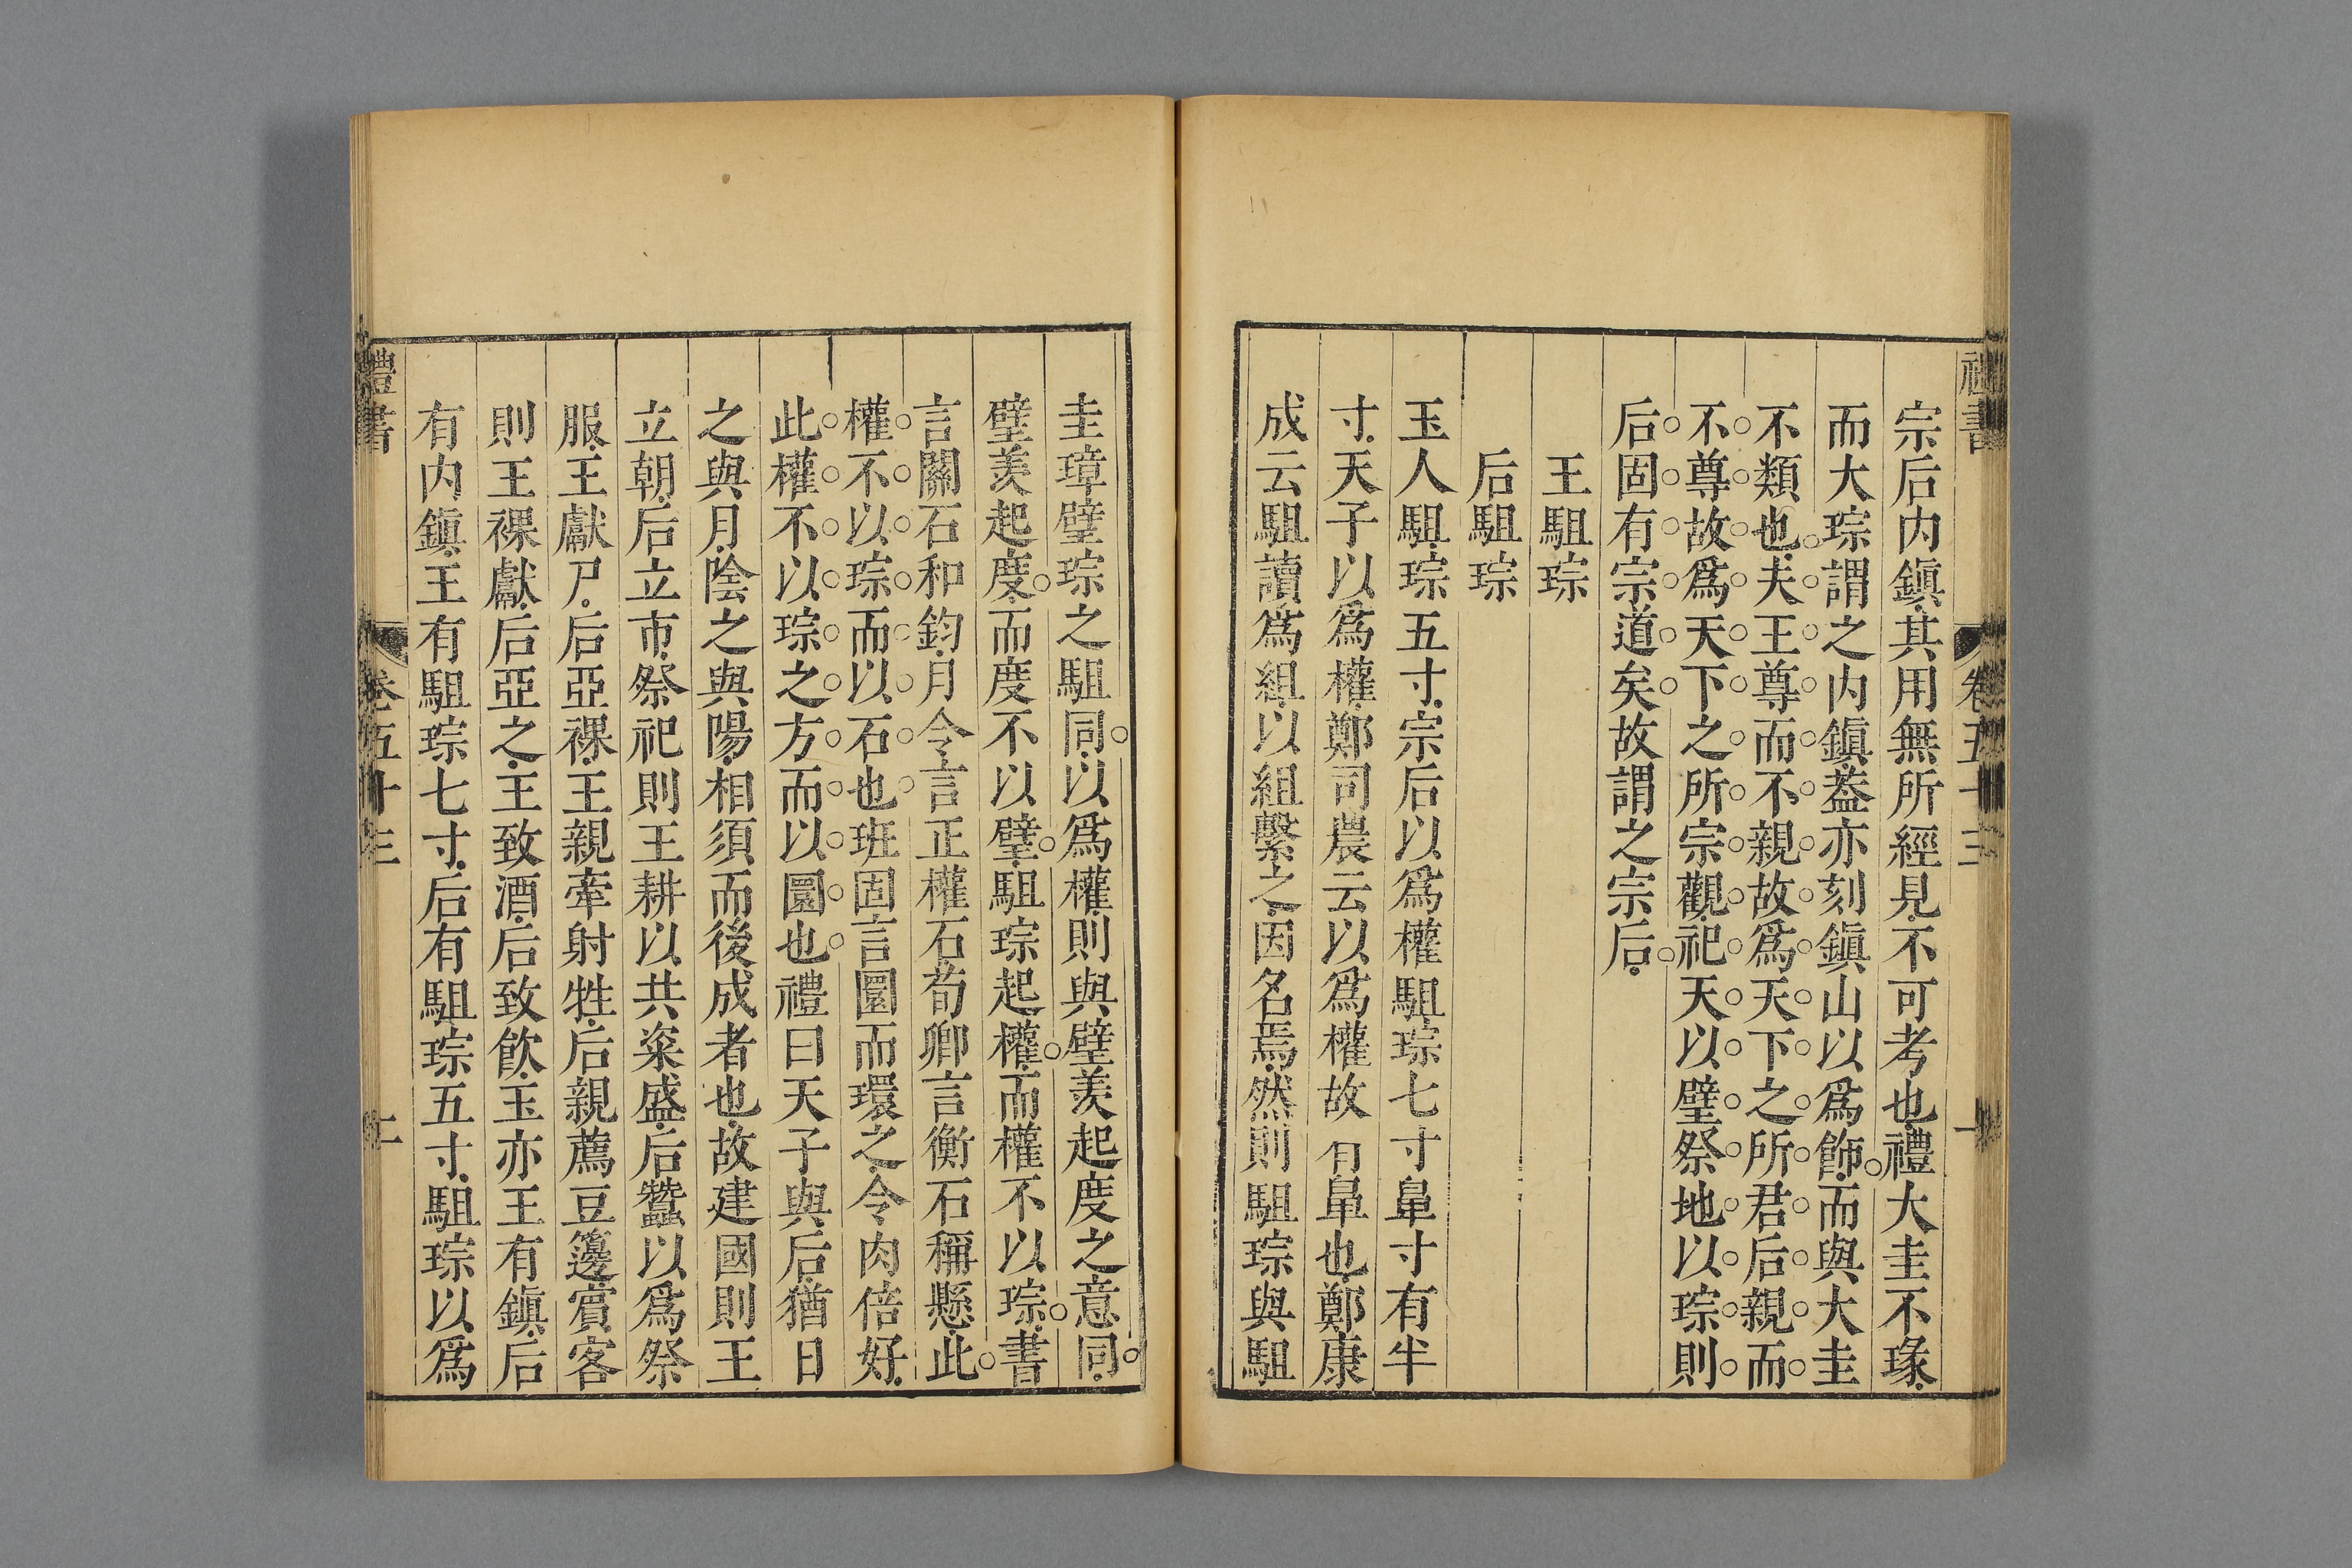 禮書
卷五十三
宗后内鎭其用無所經見不可考也禮大圭不瑑
而大琮謂之内鎭葢亦刻鎭山以爲飾而與大圭
不類也夫王尊而不親故爲天下之所君后親而
不尊故爲天下之所宗觀祀天以璧祭地以琮則
后固有宗道矣故謂之宗后
王駔琮
后駔琮
玉人駔琮五寸宗后以爲權駔琮七寸鼻寸有半
寸天子以爲權鄭司農云以爲權故有鼻也鄭康
成云駔讀爲組以組繫之因名焉然則駔琮與駔
圭璋璧琮之駔同以爲權則與璧羨起度之意同
璧羨起度而度不以璧駔琮起權而權不以琮書
言關石和鈞月令言正權石荀卿言衡石稱懸此
權不以琮而以石也班固言圜而環之令肉倍好
此權不以琮之方而以圜也禮曰天子與后猶日
之與月陰之與陽相須而後成者也故建國則王
立朝后立市祭祀則王耕以共粢盛后蠶以爲祭
服王獻尸后亞祼王親牽射牲后親薦豆籩賓客
則王祼獻后亞之王致酒后致飮玉亦王有鎭后
有内鎭王有駔琮七寸后有駔琮五寸駔琮以爲
禮書
卷五十三